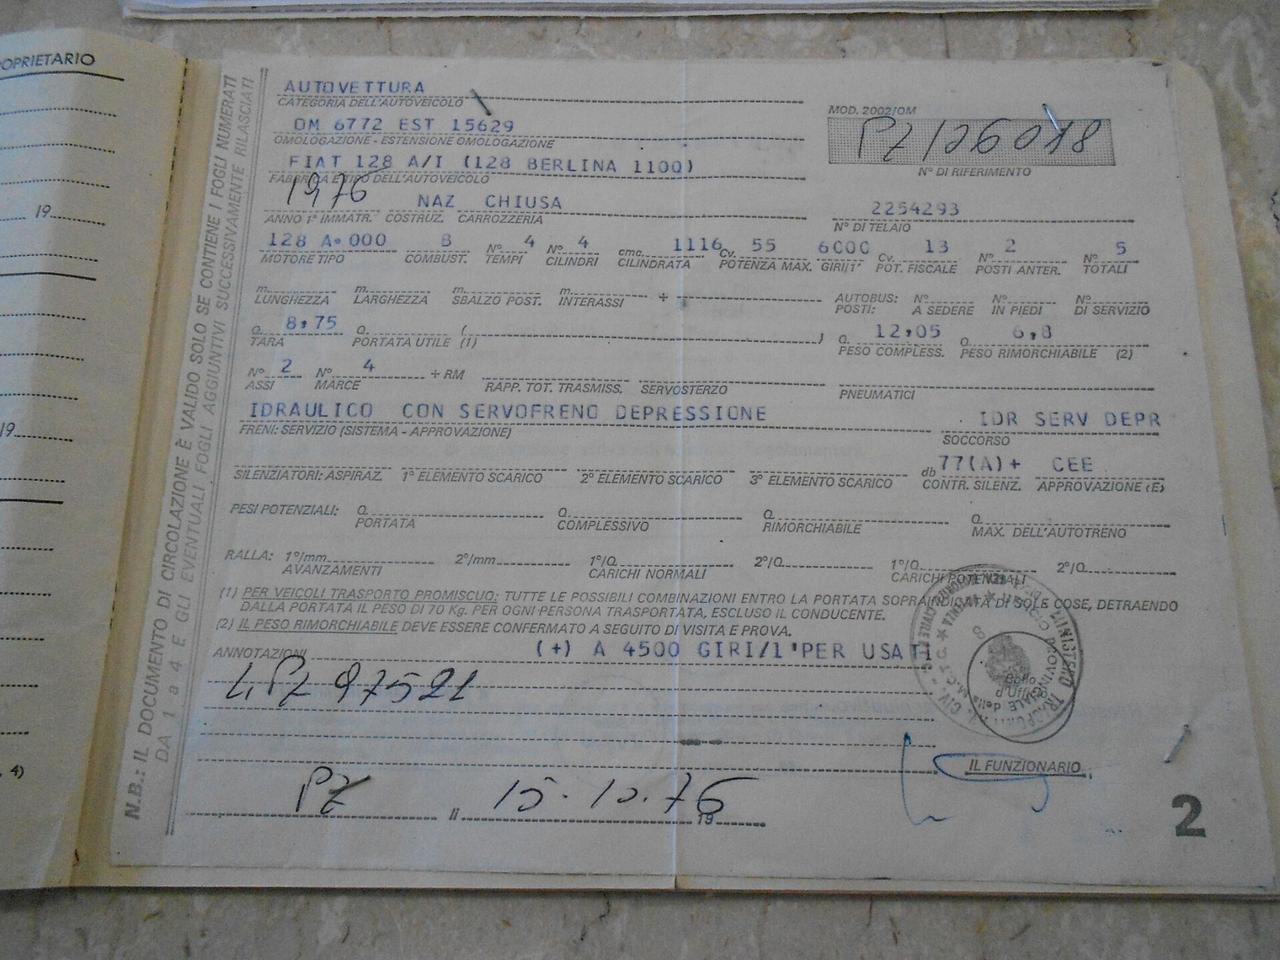 OPRIETARIO
19
19
, 4)
N.B.: IL DOCUMENTO DI CIRCOLAZIONE È VALIDO SOLO SE CONTIENE I FOGLI NUMERATI
DA 1 a 4 E GLI EVENTUALI FOGLI AGGIUNTIVI SUCCESSIVAMENTE RILASCIATI
AUTOVETTURA
CATEGORIA DELL'AUTOVEICOLO
MOD. 2002/OM
OM 6772 EST 15629
PZ/26018
OMOLOGAZIONE - ESTENSIONE OMOLOGAZIONE
FIAT 128 A/I (128 BERLINA 1100)
N° DI RIFERIMENTO
FABBRICA E TIPO DELL'AUTOVEICOLO
1976 NAZ CHIUSA 2254293
ANNO 1ª IMMATR. COSTRUZ. CARROZZERIA N° DI TELAIO
128 A.000 B N° 4 N° 4 cmc. 1116 Cv. 55 6000 Cv. 13 N° 2 N° 5
MOTORE TIPO COMBUST. TEMPI CILINDRI CILINDRATA POTENZA MAX. GIRI/1' POT. FISCALE POSTI ANTER. TOTALI
m. m. m. m. + AUTOBUS: N° N° N°
LUNGHEZZA LARGHEZZA SBALZO POST. INTERASSI POSTI: A SEDERE IN PIEDI DI SERVIZIO
Q. 8,75 Q. ( ) Q. 12,05 Q. 6,8
TARA PORTATA UTILE (1) PESO COMPLESS. PESO RIMORCHIABILE (2)
N° 2 N° 4 + RM
ASSI MARCE RAPP. TOT. TRASMISS. SERVOSTERZO PNEUMATICI
IDRAULICO CON SERVOFRENO DEPRESSIONE IDR SERV DEPR
FRENI: SERVIZIO (SISTEMA - APPROVAZIONE) SOCCORSO
db 77(A)+ CEE
SILENZIATORI: ASPIRAZ. 1° ELEMENTO SCARICO 2° ELEMENTO SCARICO 3° ELEMENTO SCARICO CONTR. SILENZ. APPROVAZIONE (E)
PESI POTENZIALI: Q. Q. Q. Q.
PORTATA COMPLESSIVO RIMORCHIABILE MAX. DELL'AUTOTRENO
RALLA: 1°/mm 2°/mm 1°/Q. 2°/Q. 1°/Q. 2°/Q.
AVANZAMENTI CARICHI NORMALI CARICHI POTENZIALI
(1) PER VEICOLI TRASPORTO PROMISCUO: TUTTE LE POSSIBILI COMBINAZIONI ENTRO LA PORTATA SOPRAINDICATA DI SOLE COSE, DETRAENDO
DALLA PORTATA IL PESO DI 70 Kg. PER OGNI PERSONA TRASPORTATA, ESCLUSO IL CONDUCENTE.
(2) IL PESO RIMORCHIABILE DEVE ESSERE CONFERMATO A SEGUITO DI VISITA E PROVA.
ANNOTAZIONI (+) A 4500 GIRI/1'PER USATI
PZ 97521
Bollo
d'Ufficio
IL FUNZIONARIO
PZ li 15.10.76
19
2